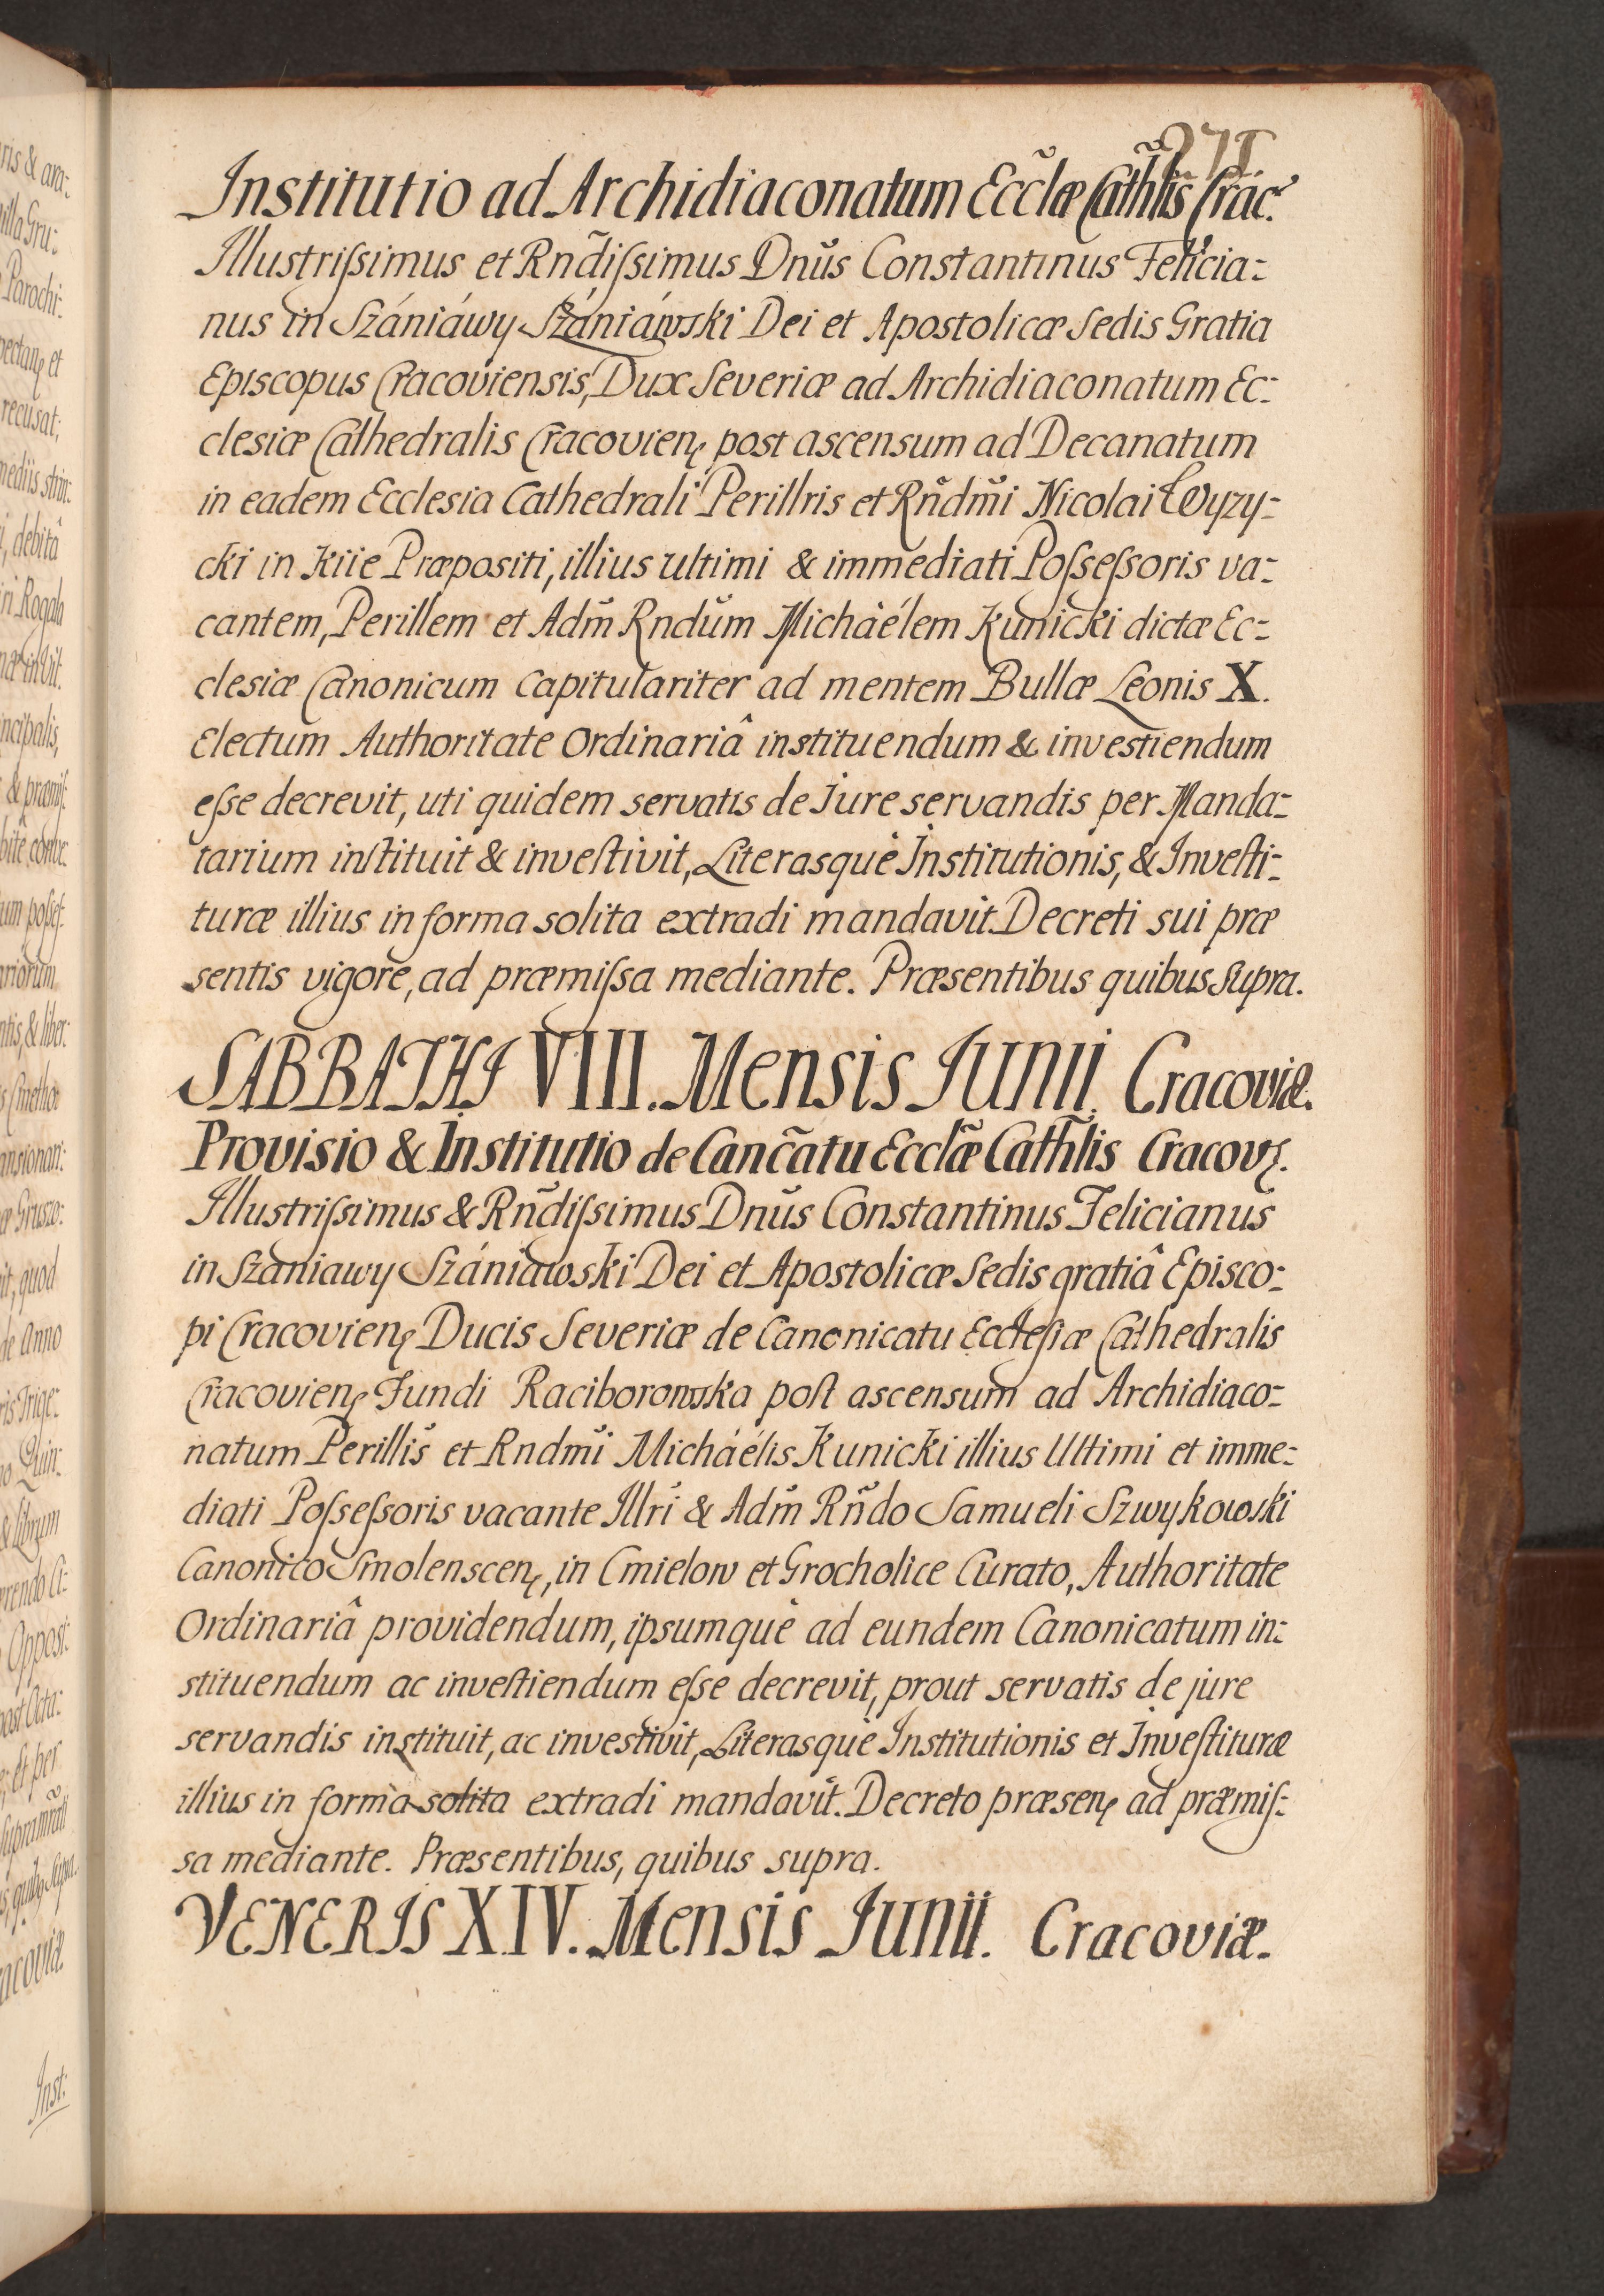 271
Institutio ad Archidiaconatum Eccl̃æ Cath̃lis Crac:
Illustriſsimus et Rnd̃iſsimus Dnus̃ Constantinus Felicia=
nus in Szániáwy Szániáwski Dei et Apostolicæ Sedis Gratia
Episcopus Cracoviensis, Dux Severiæ ad Archidiaconatum Ec=
clesiæ Cathedralis Cracovienę post ascensum ad Decanatum
in eadem Ecclesia Cathedrali Perillris et Rñdm̃i Nicolai Wyzy=
cki in Kiie Præpositi, illius ultimi & immediati Poſseſsoris va=
cantem, Perillem et Adm̃ Rndum̃ Michàélem Kunicki dictæ Ec=
clesiæ Canonicum Capitulariter ad mentem Bullæ Leonis X.
Electum Authoritate Ordinariâ instituendum & investiendum
eſse decrevit, uti quidem servatis de Jure servandis per Manda=
tarium inſtituit & inveſtivit, Literasquè Institutionis, & Inveſti=
turæ illius in forma solita extradi mandavit. Decreti sui præ
sentis vigore, ad præmiſsa mediante. Præsentibus quibus supra.
SABBATHI VIII. Mensis JUNII. Cracoviæ.
Provisio & Institutio de Canc̃atu Eccl̃æ Cath̃lis Cracovę.
Illustriſsimus & Rñdiſsimus Dnus̃ Constantinus Felicianus
in Szaniawy Szániawski Dei et Apostolicæ Sedis gratiâ Episco=
pi Cracovienę Ducis Severiæ de Canonicatu Eccleſiæ Cathedralis
Cracovienę Fundi Raciborowska poſt ascensum ad Archidiaco=
natum Perillis̃ et Rndm̃i Micháélis Kunicki illius Ultimi et imme=
diati Poſseſsoris vacante Illrĩ & Adm̃ Rñdo Samueli Szwykowski
Canonico Smolenscenę, in Cmielow et Grocholice Curato, Authoritate
Ordinariâ providendum, ipsumquè ad eundem Canonicatum in=
stituendum ac inveſtiendum eſse decrevit, prout servatis de jure
servandis instituit, ac investivit, Literasquè Institutionis et Inveſtituræ
illius in formà solita extradi mandavit. Decreto præsenę ad præmiſ=
sa mediante. Præsentibus, quibus supra.
VENERIS XIV. Mensis JUNII. Cracoviæ.
Inst: